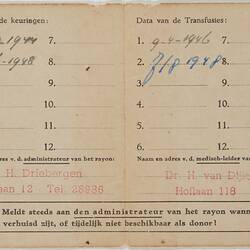 de keuringen: Data van de Transfusies:
1944 7. 1. 9-4-1946 7.
1948 8. 2. 7/8 1948 8.
9. 3. 9.
10. 4. 10.
11. 5. 11.
12. 6. 12.
adres v. d. administrateur van het rayon: Naam en adres v.d. medisch-leider v
H. Driebergen Dr. H. van Dijk
aan 12 Tel. 28936 Hoflaan 118
Meldt steeds aan den administrateur van het rayon wann
verhuisd zijt, of tijdelijk niet beschikbaar als donor!